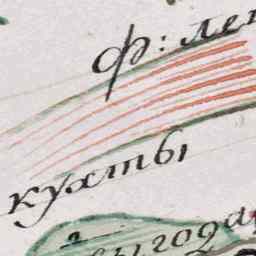 Ф: ле
кухты
2
выгода